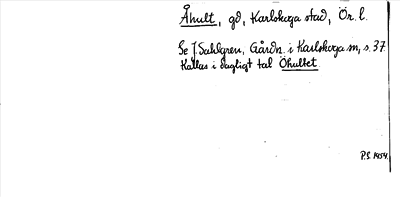 Åhult, gd, Karlskoga stad, Ör. l.
Se J. Sahlgren, Gårdn. i Karlskoga sn, s. 37.
Kallas i dagligt tal Öhultet
P.S. 1954.